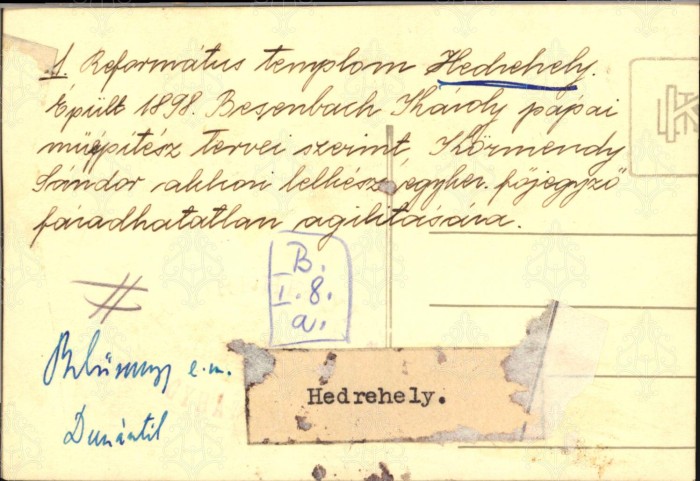 1. Református templom Hedrehely.
Épült 1898. Besenbach Károly pápai
műépítész tervei szerint, Körmendy
Sándor akkori lelkész, egyher. főjegyző
fáradhatatlan agilitására.
B.
I. 8.
a.
e.m.
Dunántúl
Hedrehely.